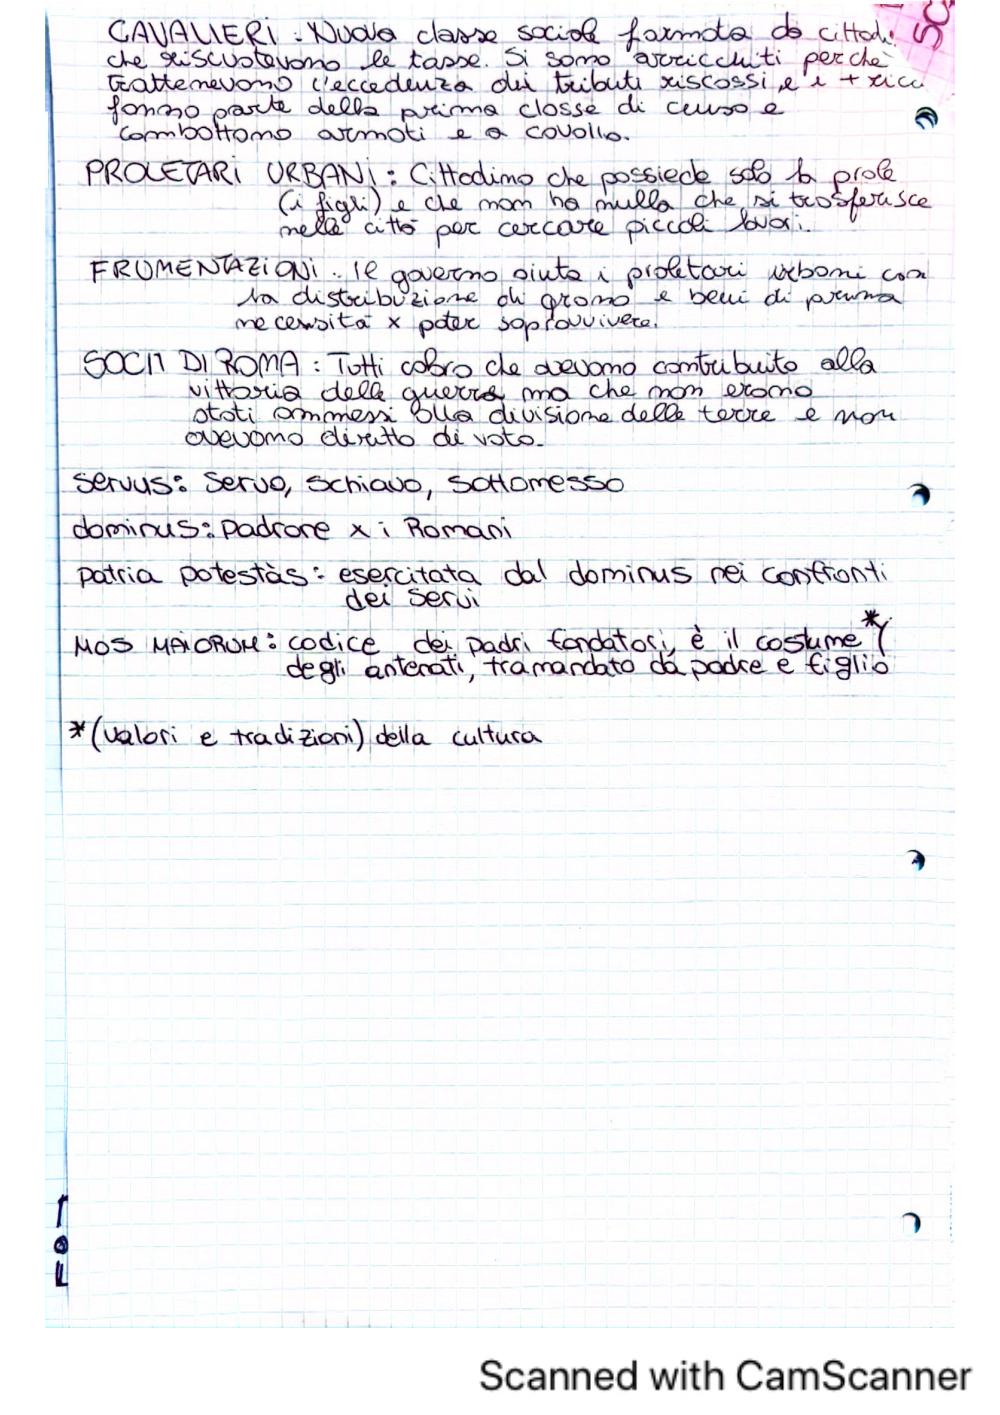 CAVALIERI: Nuova classe sociale formata da cittadi
che riscuotevano le tasse. Si sono arricchiti perché
trattenevano l'eccedenza dei tributi riscossi, e i + ricc
fanno parte della prima classe di censo e
combattono armati e a cavallo.
PROLETARI URBANI: Cittadino che possiede solo la prole
(i figli) e che non ha nulla che si trasferisce
nelle città per cercare piccoli lavori.
FRUMENTAZIONI: Il governo aiuta i proletari urbani con
la distribuzione di grano e beni di prima
necessità x poter sopravvivere.
SOCII DI ROMA: Tutti coloro che avevano contribuito alla
vittoria delle guerre ma che non erano
stati ammessi alla divisione delle terre e non
avevano diritto di voto.
servus: servo, schiavo, sottomesso
dominus: padrone x i Romani
patria potestàs: esercitata dal dominus nei confronti
dei servi
MOS MAIORUM: codice dei padri fondatori, è il costume *(
degli antenati, tramandato da padre e figlio
*(valori e tradizioni) della cultura
Scanned with CamScanner